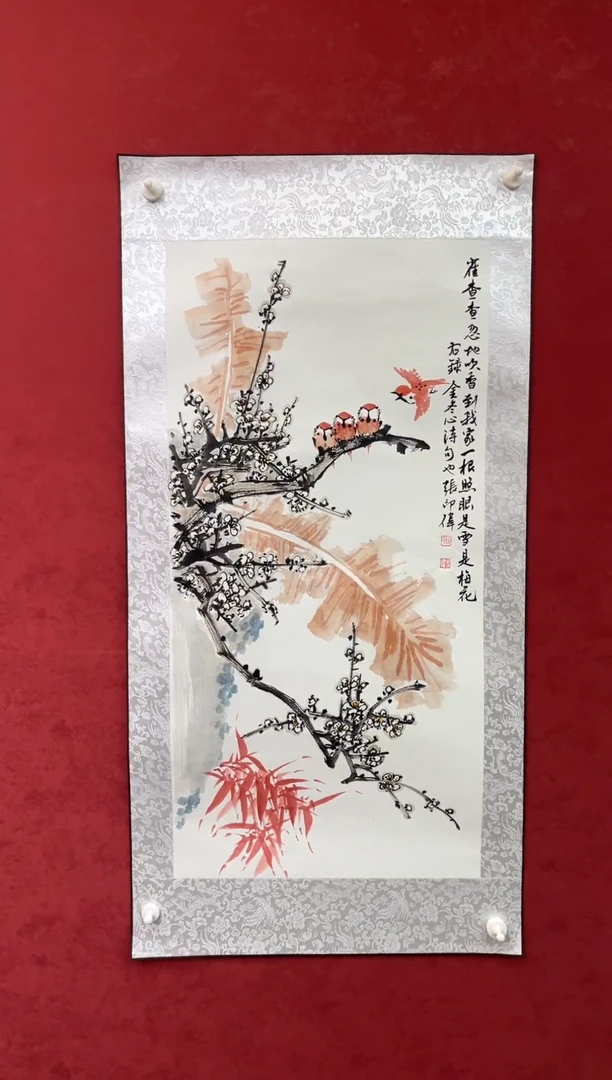 雀查查忽地吹香到我家一枝照眼是雪是梅花
右録金冬心詩句也張印偉